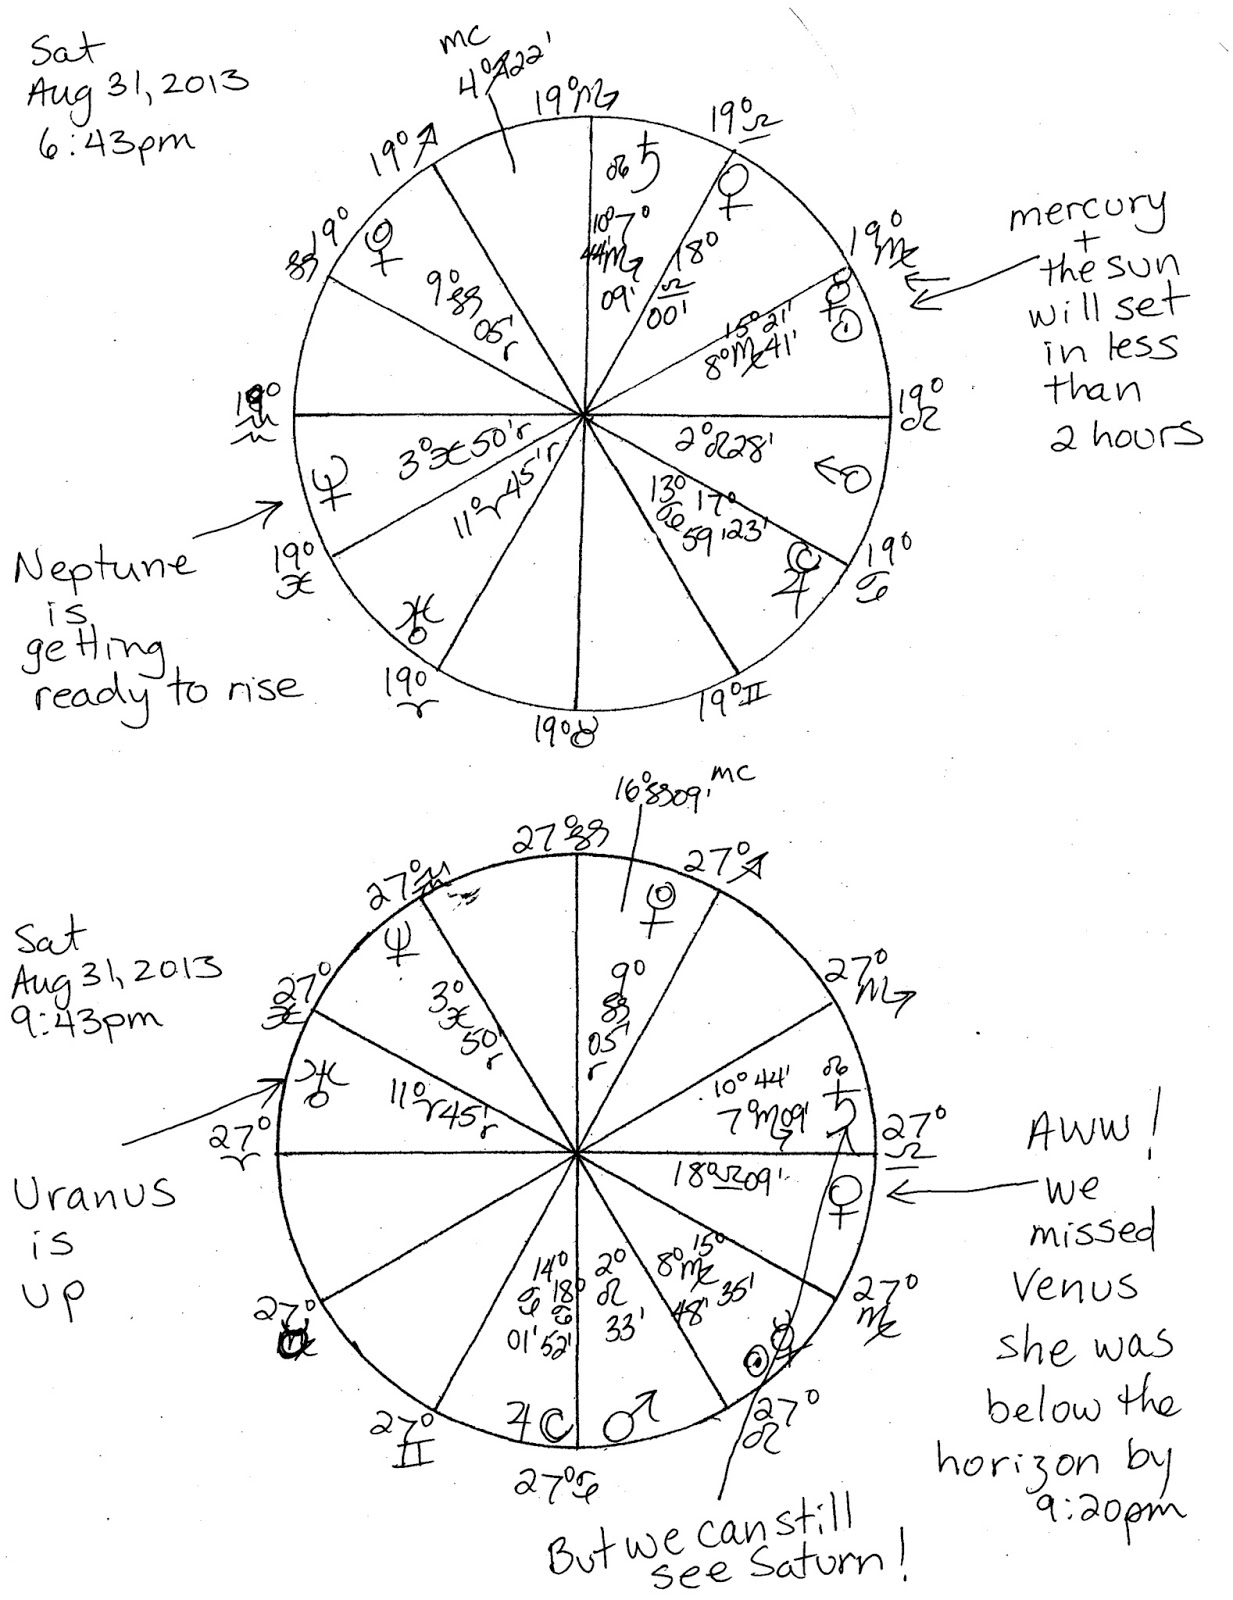 Sat
Aug 31, 2013
6:43pm
mc
4°♐22'
19°♏
19°♎
19°♐
19°♑
19°♍
☊ ♄
♀
10° 7°
44' ♏
09'
18°
♎
00'
9°
♑
05'
r
15° 21'
8°♍41'
☿
☉
mercury
+
the sun
will set
in less
than
2 hours
19°
♒
19°
♌
3°♓50'r
2°♌28'
♂
♆
11°♈45'r
13° 17°
♋
59' 23'
☾
♃
Neptune
is
getting
ready to rise
19°
♓
19°
♋
♅
19°
♈
19°♉
19°♊
16°♑09' mc
27°♑
27°♐
27°♒
♆
Sat
Aug 31, 2013
9:43pm
27°
♓
27°
♏
3°
♓
50'
r
9°
♑
05'
r
♅
11°♈45'r
10° 44'
7°♏09'
☊
♄
27°
♈
27°
♎
18°♎09'
♀
Uranus
is
up
AWW!
we
missed
Venus
she was
below the
horizon by
9:20pm
14°
♋ 18°
♋
01' 52'
2°
♌
33'
15°
8°♍
48' 35'
27°
27°
♍
☉ ☿
♃ ☾
♂
27°
♊
27°♋
27°
♌
But we can still
see Saturn!